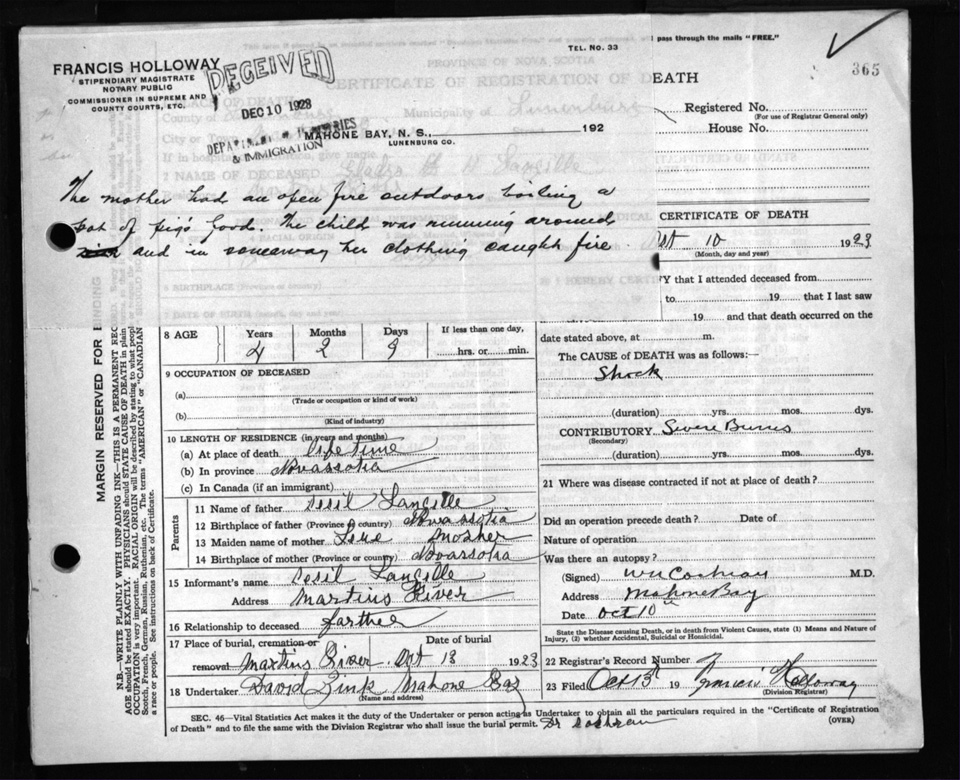 pass through the mails "FREE."
TEL. No. 33
365
FRANCIS HOLLOWAY
STIPENDIARY MAGISTRATE
NOTARY PUBLIC
COMMISSIONER IN SUPREME AND
COUNTY COURTS, ETC.
RECEIVED
DEC 10 1928
& IMMIGRATION
PROVINCE OF NOVA SCOTIA
CERTIFICATE OF REGISTRATION OF DEATH
Municipality of Lunenburg
City or Town
MAHONE BAY, N. S., 192
LUNENBURG CO.
Registered No.
(For use of Registrar General only)
House No.
2 NAME OF DECEASED Langille
The mother had an open fire outdoors boiling a
pot of pig's food. The child was running around
and in someaway her clothing caught fire.
CERTIFICATE OF DEATH
10 1923
(Month, day and year)
Y that I attended deceased from
to 19 that I last saw
19 and that death occurred on the
date stated above, at m.
The CAUSE of DEATH was as follows:—
Shock
(duration) yrs. mos. dys.
CONTRIBUTORY Severe Burns
(Secondary)
(duration) yrs. mos. dys.
21 Where was disease contracted if not at place of death?
Did an operation precede death? Date of
Nature of operation
Was there an autopsy?
(Signed) Wm Cochran M.D.
Address Mahone Bay
Date Oct 10th
State the Disease causing Death, or in death from Violent Causes, state (1) Means and Nature of
Injury, (2) whether Accidental, Suicidal or Homicidal.
22 Registrar's Record Number
23 Filed Oct 13th 19 Francis Holloway
(Division Registrar)
8 AGE Years Months Days If less than one day,
4 2 9 hrs. or min.
9 OCCUPATION OF DECEASED
(a)
(Trade or occupation or kind of work)
(b)
(Kind of industry)
10 LENGTH OF RESIDENCE (in years and months)
(a) At place of death life time
(b) In province Novassotia
(c) In Canada (if an immigrant)
Parents
11 Name of father Sesil Langille
12 Birthplace of father (Province or country) Novassotia
13 Maiden name of mother Mosher
14 Birthplace of mother (Province or country) Novassotia
15 Informant's name Sesil Langille
Address Martins River
16 Relationship to deceased farther
17 Place of burial, cremation or Date of burial
removal Martins River Oct 13 1923
18 Undertaker David Zink Mahone Bay
(Name and address)
SEC. 46—Vital Statistics Act makes it the duty of the Undertaker or person acting as Undertaker to obtain all the particulars required in the "Certificate of Registration
of Death" and to file the same with the Division Registrar who shall issue the burial permit. (OVER)
Dr Cochran
MARGIN RESERVED FOR BINDING
N.B.—WRITE PLAINLY WITH UNFADING INK—THIS IS A PERMANENT REC
AGE should be stated EXACTLY. PHYSICIANS should STATE CAUSE OF DEATH in plain
OCCUPATION is very important. RACIAL ORIGIN will be described by stating to what peopl
Scotch, French, German, Russian, Ruthenian, etc. The terms "AMERICAN" or "CANADIAN
a race or people. See instructions on back of Certificate.